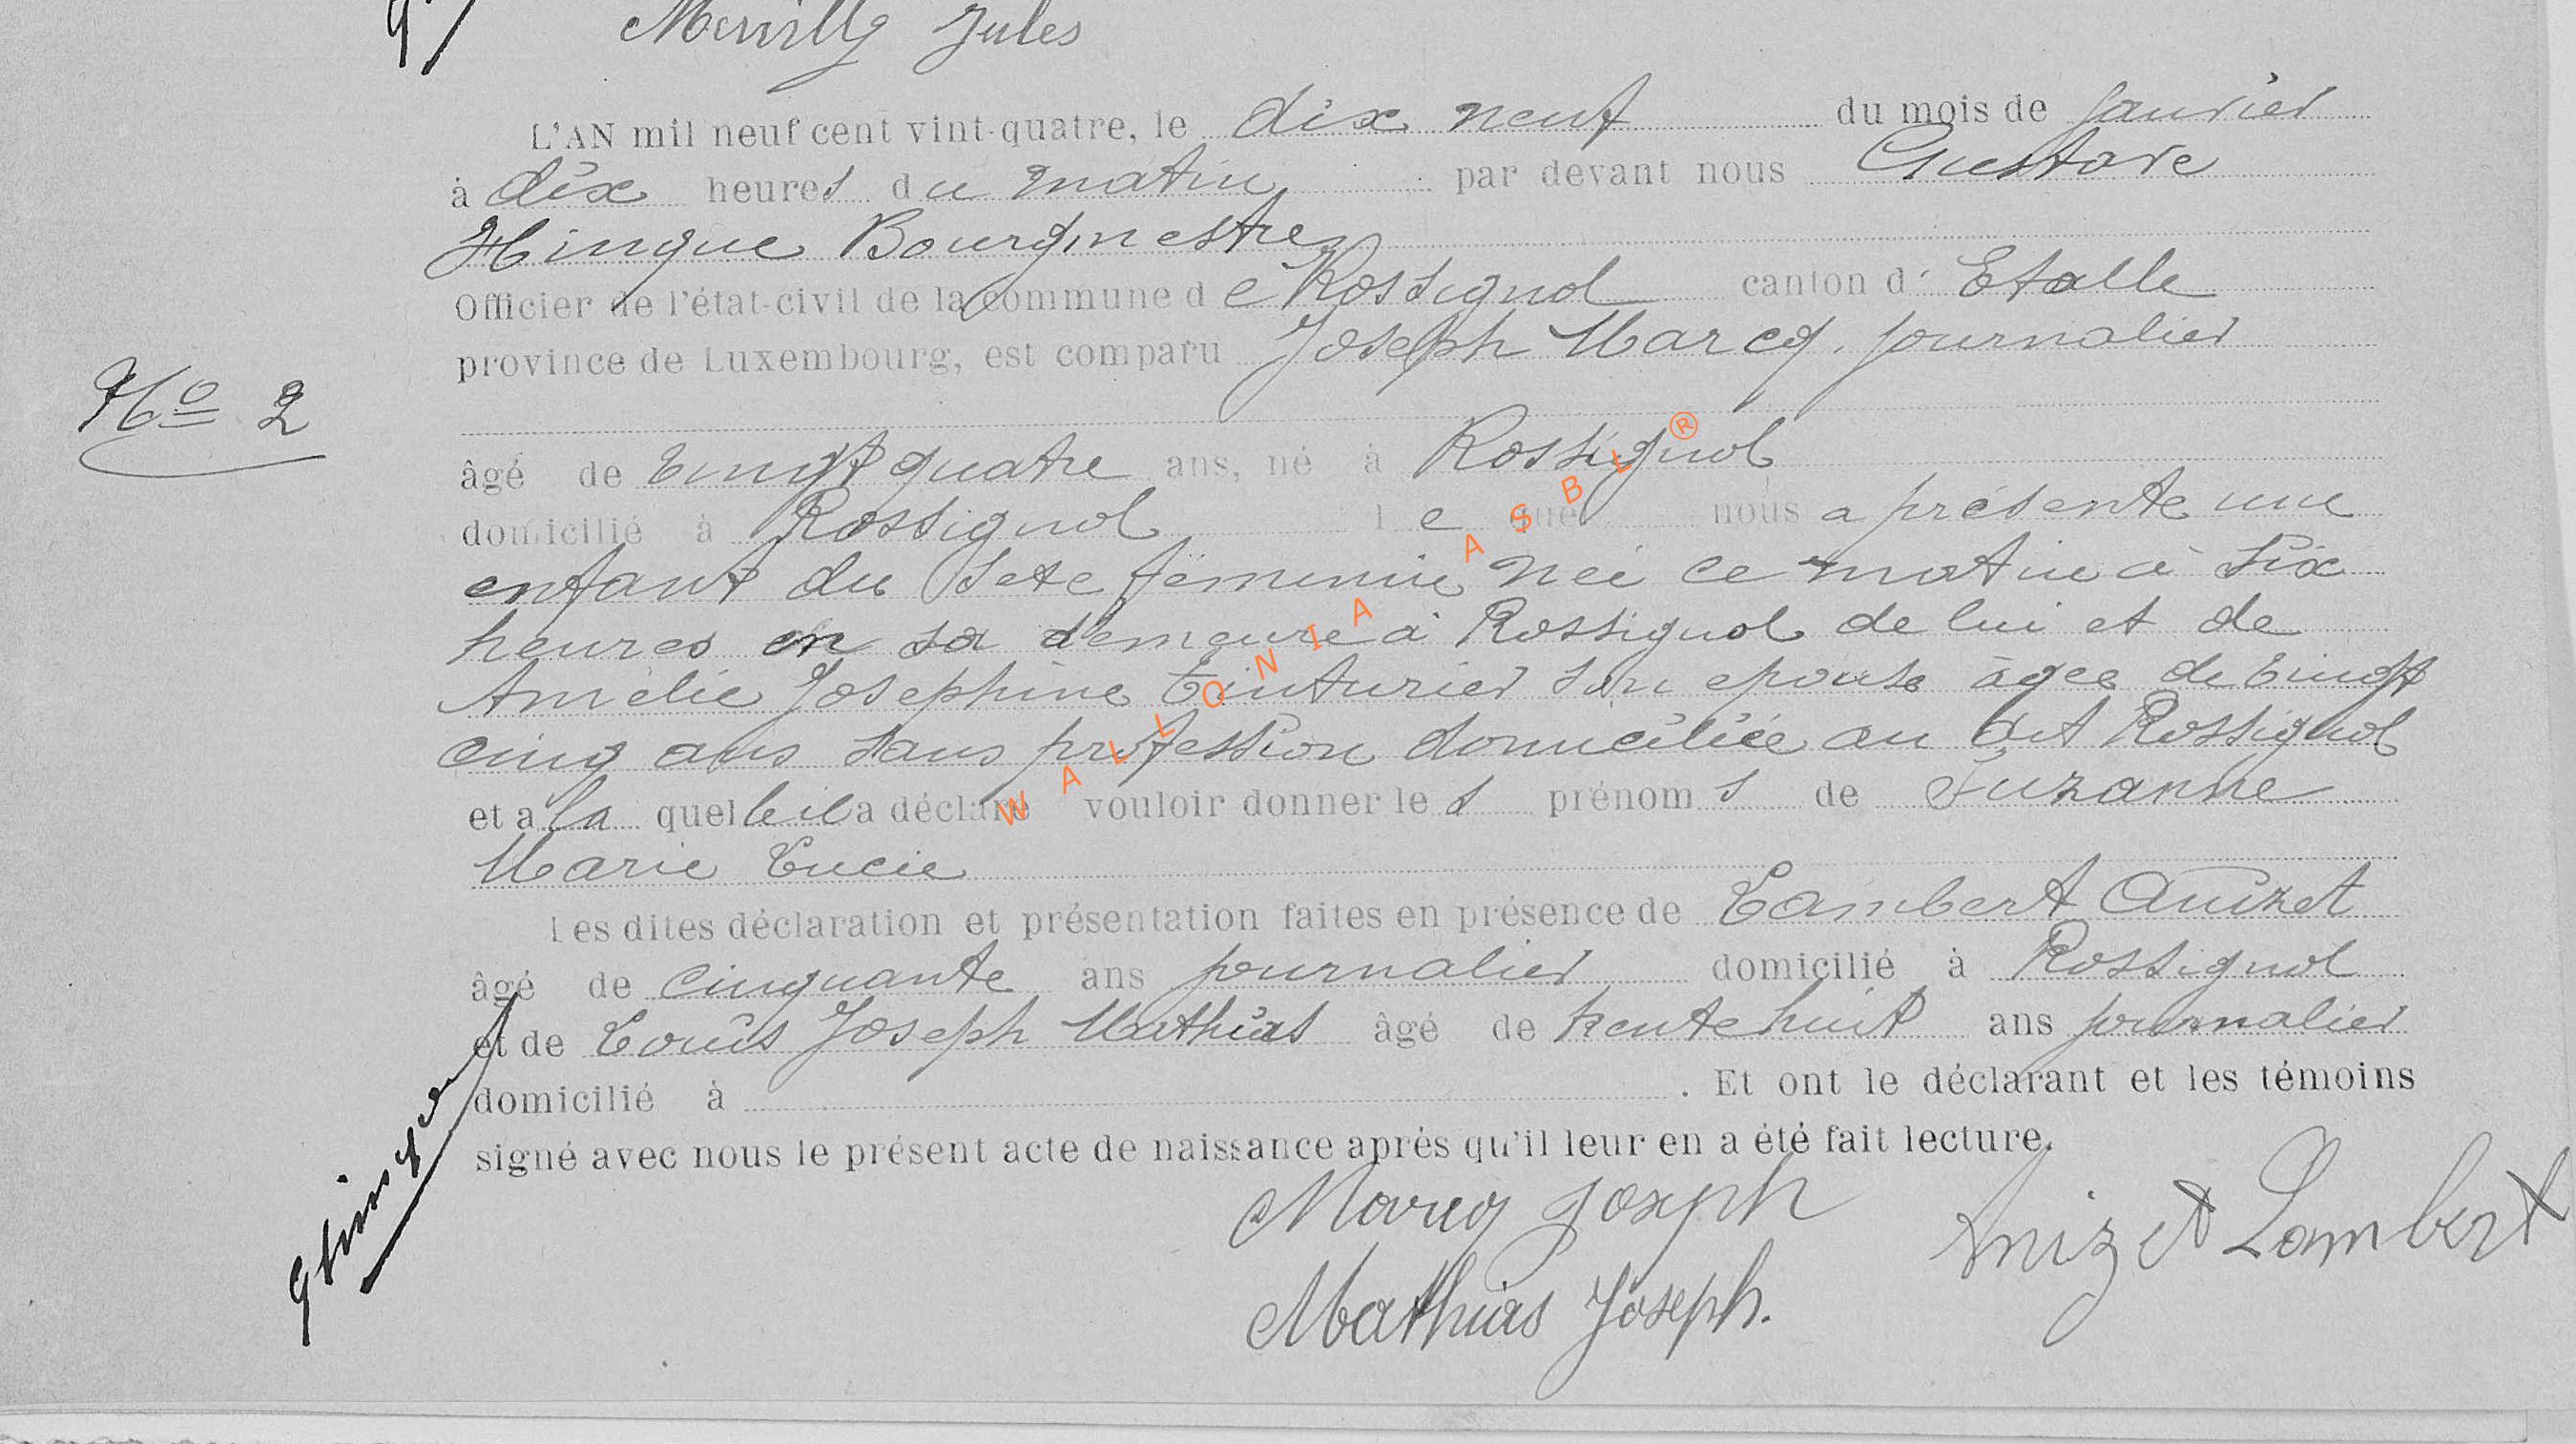 Jules
L'AN mil neuf cent vint-quatre, le dix neuf du mois de janvier
à dix heures du matin par devant nous Gustave
Hinque Bourgmestre
Officier de l'état-civil de la commune de Rossignol canton d' Etalle
province de Luxembourg, est comparu Joseph Marcq. journalier
No 2
âgé de vingt quatre ans, né à Rossignol
domicilié à Rossignol le quel nous a présenté une
enfant du sexe féminin née ce matin à six
heures en sa demeure à Rossignol de lui et de
Amélie Josephine Tinturier son epouse âgee de vingt
cinq ans sans profession domiciliée au dit Rossignol
et a la quelle il a déclaré vouloir donner le s prénom s de Suzanne
Marie Lucie
Les dites déclaration et présentation faites en présence de Lambert Anizet
âgé de cinquante ans journalier domicilié à Rossignol
et de Louis Joseph Mathias âgé de trente huit ans journalier
domicilié à . Et ont le déclarant et les témoins
signé avec nous le présent acte de naissance après qu'il leur en a été fait lecture.
Marcq Joseph Anizet Lambert
Mathias Joseph.
WALLONIA ASBL ®